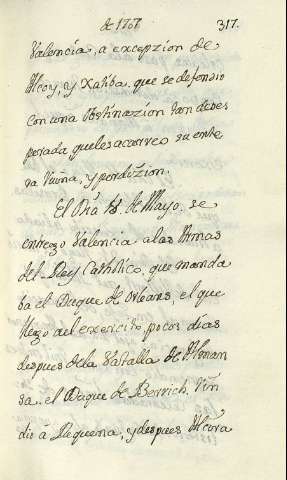 de 1707
317.
Valencia, a excepzion de
Alcoy, y Xatiba, que se defendio
con una Obstinazion tan deses
perada que les acarreo su ente
ra Ruina, y perdizion.
El Dia 8. de Mayo. se
entrego Valencia a las Armas
del Rey Catholico, que manda
ba el Duque de Orleans, el que
llego a el exercito pocos dias
despues de la Vattalla de Alman
sa. el Duque de Berrich. Rin
dio à Requena, y despues Alcira